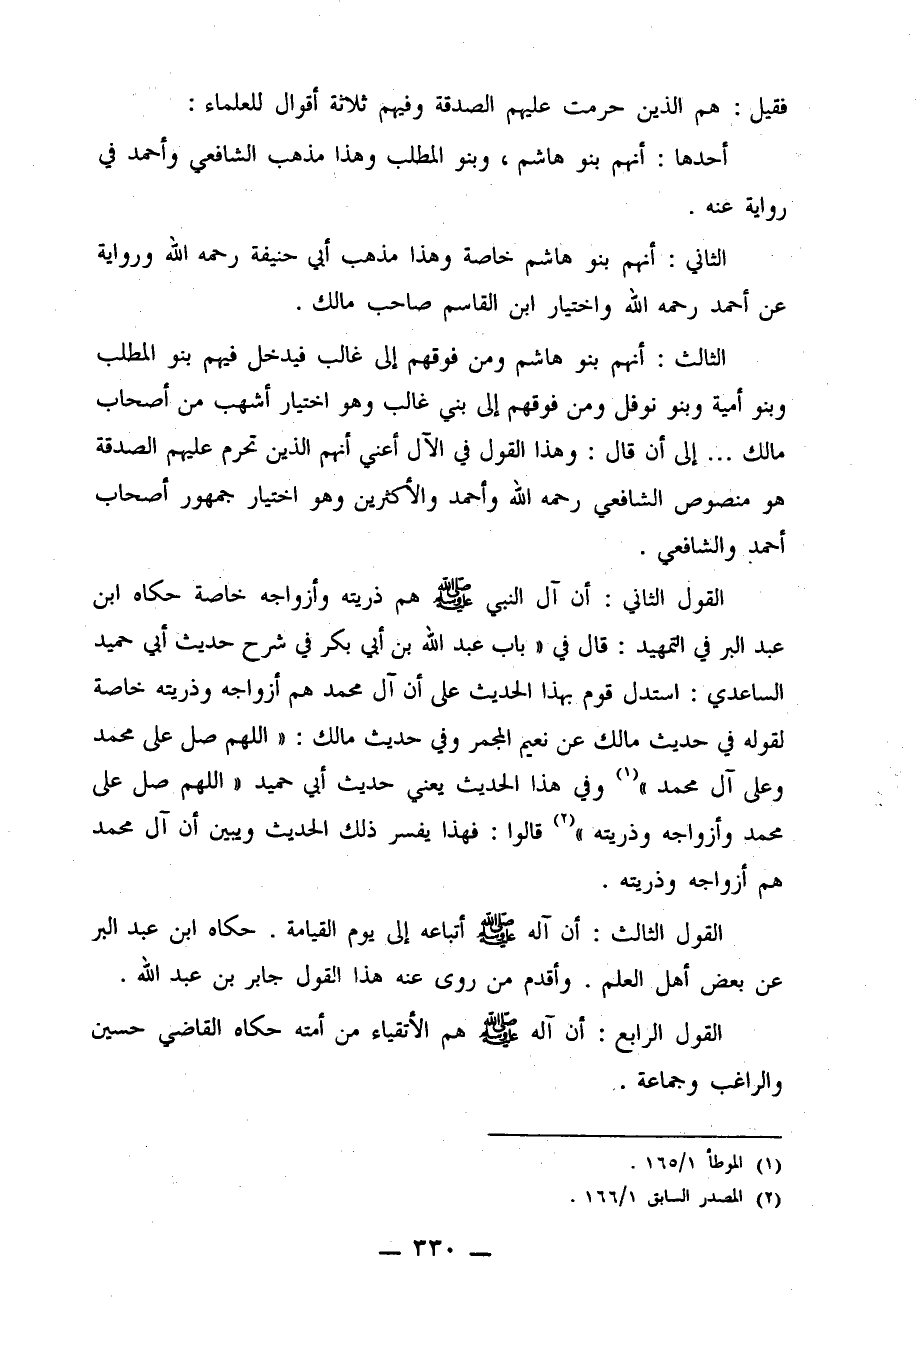 فقيل : هم الذين حرمت عليهم الصدقة وفيهم ثلاثة أقوال للعلماء :
أحدها : أنهم بنو هاشم ، وبنو المطلب وهذا مذهب الشافعي وأحمد في
رواية عنه .
الثاني : أنهم بنو هاشم خاصة وهذا مذهب أبي حنيفة رحمه الله ورواية
عن أحمد رحمه الله واختيار ابن القاسم صاحب مالك .
الثالث : أنهم بنو هاشم ومن فوقهم إلى غالب فيدخل فيهم بنو المطلب
وبنو أمية وبنو نوفل ومن فوقهم إلى بني غالب وهو اختيار أشهب من أصحاب
مالك ... إلى أن قال : وهذا القول في الآل أعني أنهم الذين تحرم عليهم الصدقة
هو منصوص الشافعي رحمه الله وأحمد والأكثرين وهو اختيار جمهور أصحاب
أحمد والشافعي .
القول الثاني : أن آل النبي ﷺ هم ذريته وأزواجه خاصة حكاه ابن
عبد البر في التمهيد : قال في « باب عبد الله بن أبي بكر في شرح حديث أبي حميد
الساعدي : استدل قوم بهذا الحديث على أن آل محمد هم أزواجه وذريته خاصة
لقوله في حديث مالك عن نعيم المجمر وفي حديث مالك : « اللهم صل على محمد
وعلى آل محمد »(١) وفي هذا الحديث يعني حديث أبي حميد « اللهم صل على
محمد وأزواجه وذريته »(٢) قالوا : فهذا يفسر ذلك الحديث ويبين أن آل محمد
هم أزواجه وذريته .
القول الثالث : أن آله ﷺ أتباعه إلى يوم القيامة . حكاه ابن عبد البر
عن بعض أهل العلم . وأقدم من روى عنه هذا القول جابر بن عبد الله .
القول الرابع : أن آله ﷺ هم الأتقياء من أمته حكاه القاضي حسين
والراغب وجماعة .
(١) الموطأ ١/١٦٥ .
(٢) المصدر السابق ١/١٦٦ .
— ٣٣٠ —